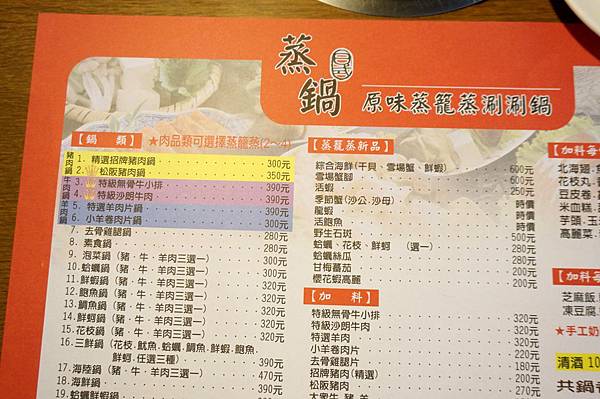 蒸鍋
日式
原味蒸籠蒸涮涮鍋
【鍋 類】 ★肉品類可選擇蒸籠蒸(2~4)
豬肉鍋
牛肉鍋
羊肉鍋
1. 精選招牌豬肉鍋 300元
2. 松阪豬肉鍋 350元
3. 特級無骨牛小排 390元
4. 特級沙朗牛肉 390元
5. 特選羊肉片鍋 300元
6. 小羊卷肉片鍋 300元
7. 去骨雞腿鍋 280元
8. 素食鍋 280元
9. 泡菜鍋(豬‧牛‧羊肉三選一) 300元
10. 蛤蠣鍋(豬‧牛‧羊肉三選一) 320元
11. 鮮蝦鍋(豬‧牛‧羊肉三選一) 320元
12. 鮑魚鍋(豬‧牛‧羊肉三選一) 320元
13. 鯛魚鍋(豬‧牛‧羊肉三選一) 320元
14. 鮮蚵鍋(豬‧牛‧羊肉三選一) 320元
15. 花枝鍋(豬‧牛‧羊肉三選一) 320元
16. 三鮮鍋(花枝.魷魚.蛤蠣.鯛魚.鮮蝦.鮑魚.
鮮蚵.任選三種) 390元
17. 海陸鍋(豬‧牛‧羊肉三選一) 470元
18. 海鮮鍋 390元
19. 蛤蠣鮮蝦鍋
【蒸籠蒸新品】
綜合海鮮(干貝、雪場蟹、鮮蝦) 600元
雪場蟹腳 600元
活蝦 250元
季節蟹(沙公.沙母) 時價
龍蝦 時價
活鮑魚 時價
野生石斑 500元
蛤蠣、花枝、鮮蚵 (選一) 280元
蛤蠣絲瓜 200元
甘梅蕃茄 200元
櫻花蝦高麗 200元
【加 料】
特級無骨牛小排 320元
特級沙朗牛肉 320元
特選羊肉 220元
小羊卷肉片 220元
去骨雞腿片 180元
招牌豬肉(精選) 220元
松阪豬肉 270元
【加料每
北海翅.魚
花枝丸.
豆皮卷.
米血糕.
芋頭.玉
高麗菜.
【加料每
芝麻飯.
凍豆腐.
★手工奶
清酒 10
共鍋